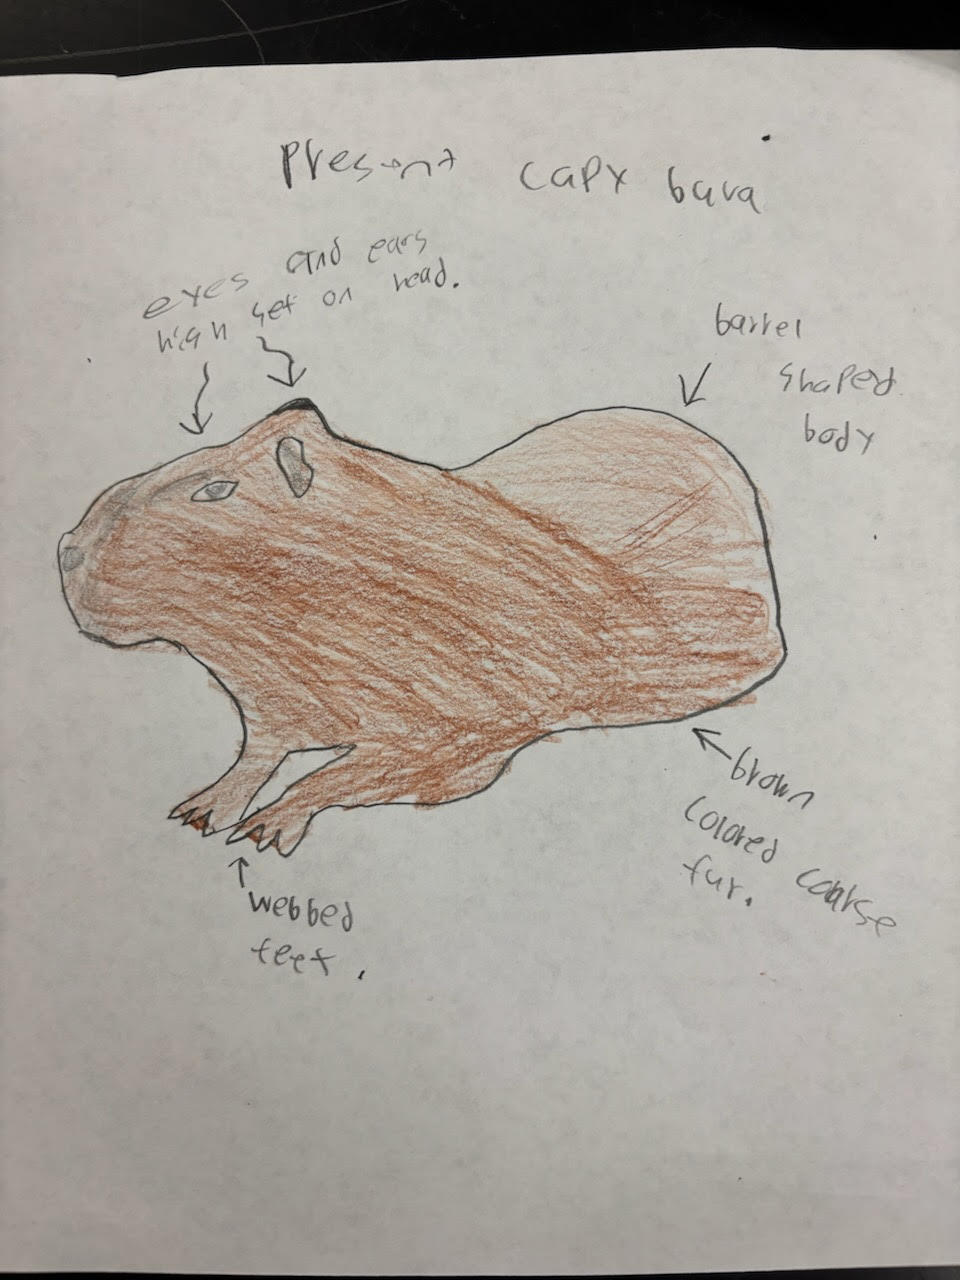 Present capy bara
eyes and ears
high set on head.
barrel
shaped
body
brown
colored coarse
fur.
webbed
feet.